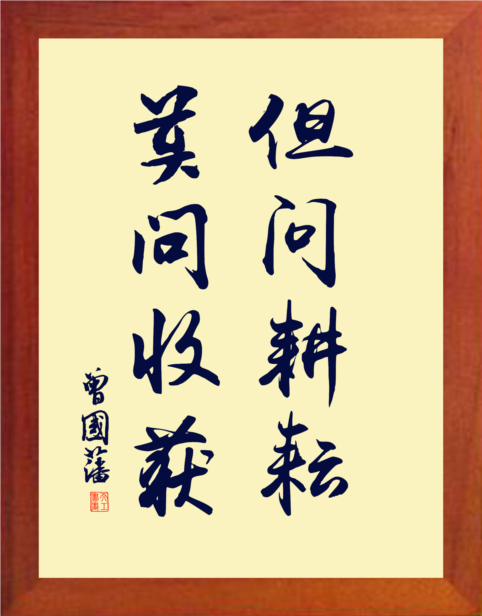 但问耕耘
莫问收获
曾國藩